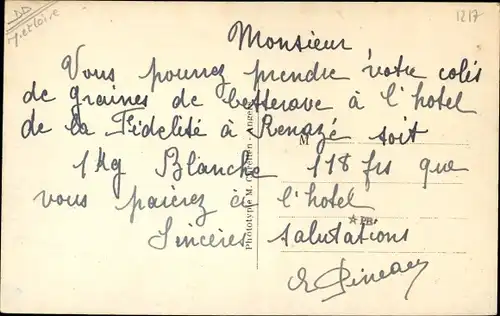 DD
M. et Loire
1217
Monsieur,
Vous pourrez prendre votre colis
de graines de betterave à l'hotel
de la Fidelité à Renazé soit
M
1 Kg Blanche 118 frs que
vous paierez à l'hotel
Sincères salutations
Pineau
Phototypie M. Chrétien - Angers